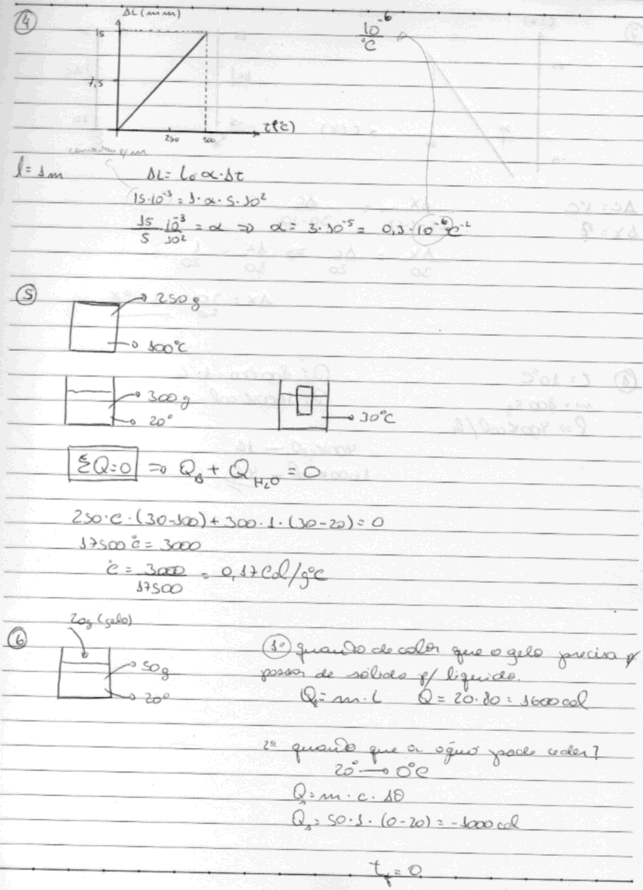 4
ΔL (mm)
15
7,5
250 500 t(°C)
10⁻⁶
°C
l = 1m
ΔL = L₀ α · Δt
15·10⁻³ = 1·α·5·10²
15/5 10⁻³/10² = α ⇒ α = 3·10⁻⁵ = 0,3·10⁻⁶ °C⁻¹
5
250g
100°C
300g
20°
30°C
ΣQ=0 ⇒ Q_B + Q_H₂O = 0
250·c·(30-100)+300·1·(30-20)=0
17500 c = 3000
c = 3000/17500 = 0,17 Cal/g°C
6
20g (gelo)
50g
20°
1º quando de calor que o gelo precisa p/
passar de sólido p/ líquido.
Q = m·L Q = 20·80 = 1600 cal
2º quando que a água pode ceder?
20° → 0°C
Q = m·c·Δθ
Q = 50·1·(0-20) = -1000 cal
t_f = 0